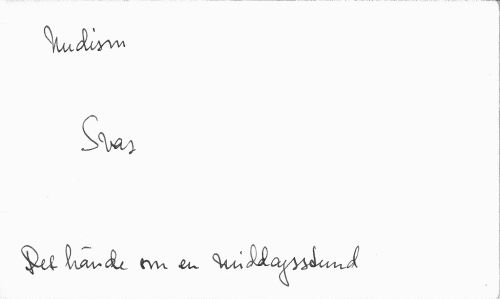 Nudism
Svar
Det hände om en middagsstund